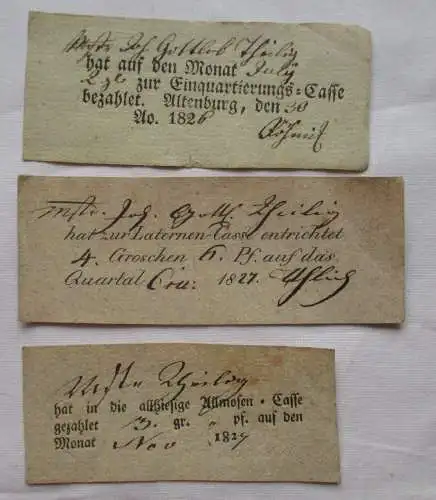 Mstr. Joh. Gottlob Theilig
hat auf den Monat July
2 gl zur Einquartierungs-Casse
bezahlet. Altenburg, den 30
Ao. 1826
Mstr. Joh. Gottl. Theilig
hat zur Laternen-Casse entrichtet
4. Groschen 6. Pf. auf das
Quartal Cru: 1827.
Mstr Theilig
hat in die allhiesige Allmosen-Casse
gezahlet 3. gr. " pf. auf den
Monat Nov 1827